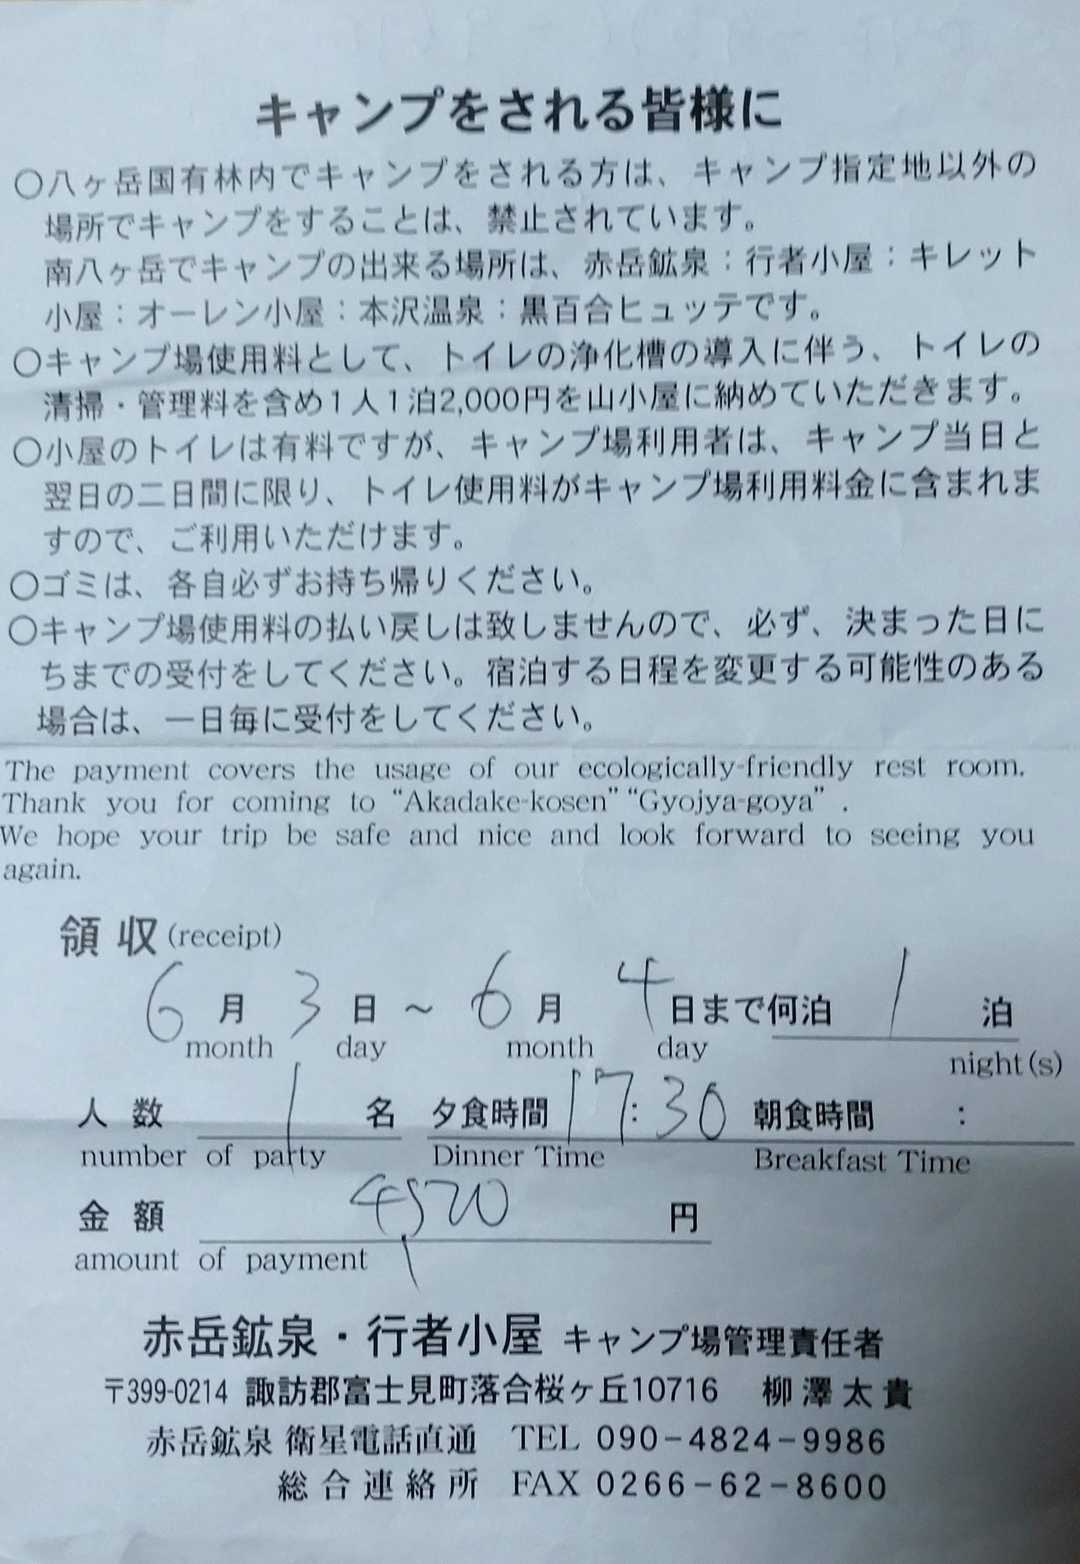 キャンプをされる皆様に
○八ヶ岳国有林内でキャンプをされる方は、キャンプ指定地以外の
場所でキャンプをすることは、禁止されています。
南八ヶ岳でキャンプの出来る場所は、赤岳鉱泉：行者小屋：キレット
小屋：オーレン小屋：本沢温泉：黒百合ヒュッテです。
○キャンプ場使用料として、トイレの浄化槽の導入に伴う、トイレの
清掃・管理料を含め1人1泊2,000円を山小屋に納めていただきます。
○小屋のトイレは有料ですが、キャンプ場利用者は、キャンプ当日と
翌日の二日間に限り、トイレ使用料がキャンプ場利用料金に含まれま
すので、ご利用いただけます。
○ゴミは、各自必ずお持ち帰りください。
○キャンプ場使用料の払い戻しは致しませんので、必ず、決まった日に
ちまでの受付をしてください。宿泊する日程を変更する可能性のある
場合は、一日毎に受付をしてください。
The payment covers the usage of our ecologically-friendly rest room.
Thank you for coming to “Akadake-kosen” “Gyojya-goya” .
We hope your trip be safe and nice and look forward to seeing you
again.
領 収 (receipt)
6 月 3 日 ～ 6 月 4 日まで何泊 1 泊
month day month day night(s)
人 数 1 名 夕食時間 17:30 朝食時間 :
number of party Dinner Time Breakfast Time
金 額 4,500 円
amount of payment
赤岳鉱泉・行者小屋 キャンプ場管理責任者
〒399-0214 諏訪郡富士見町落合桜ヶ丘10716 柳澤太貴
赤岳鉱泉 衛星電話直通 TEL 090-4824-9986
総合連絡所 FAX 0266-62-8600